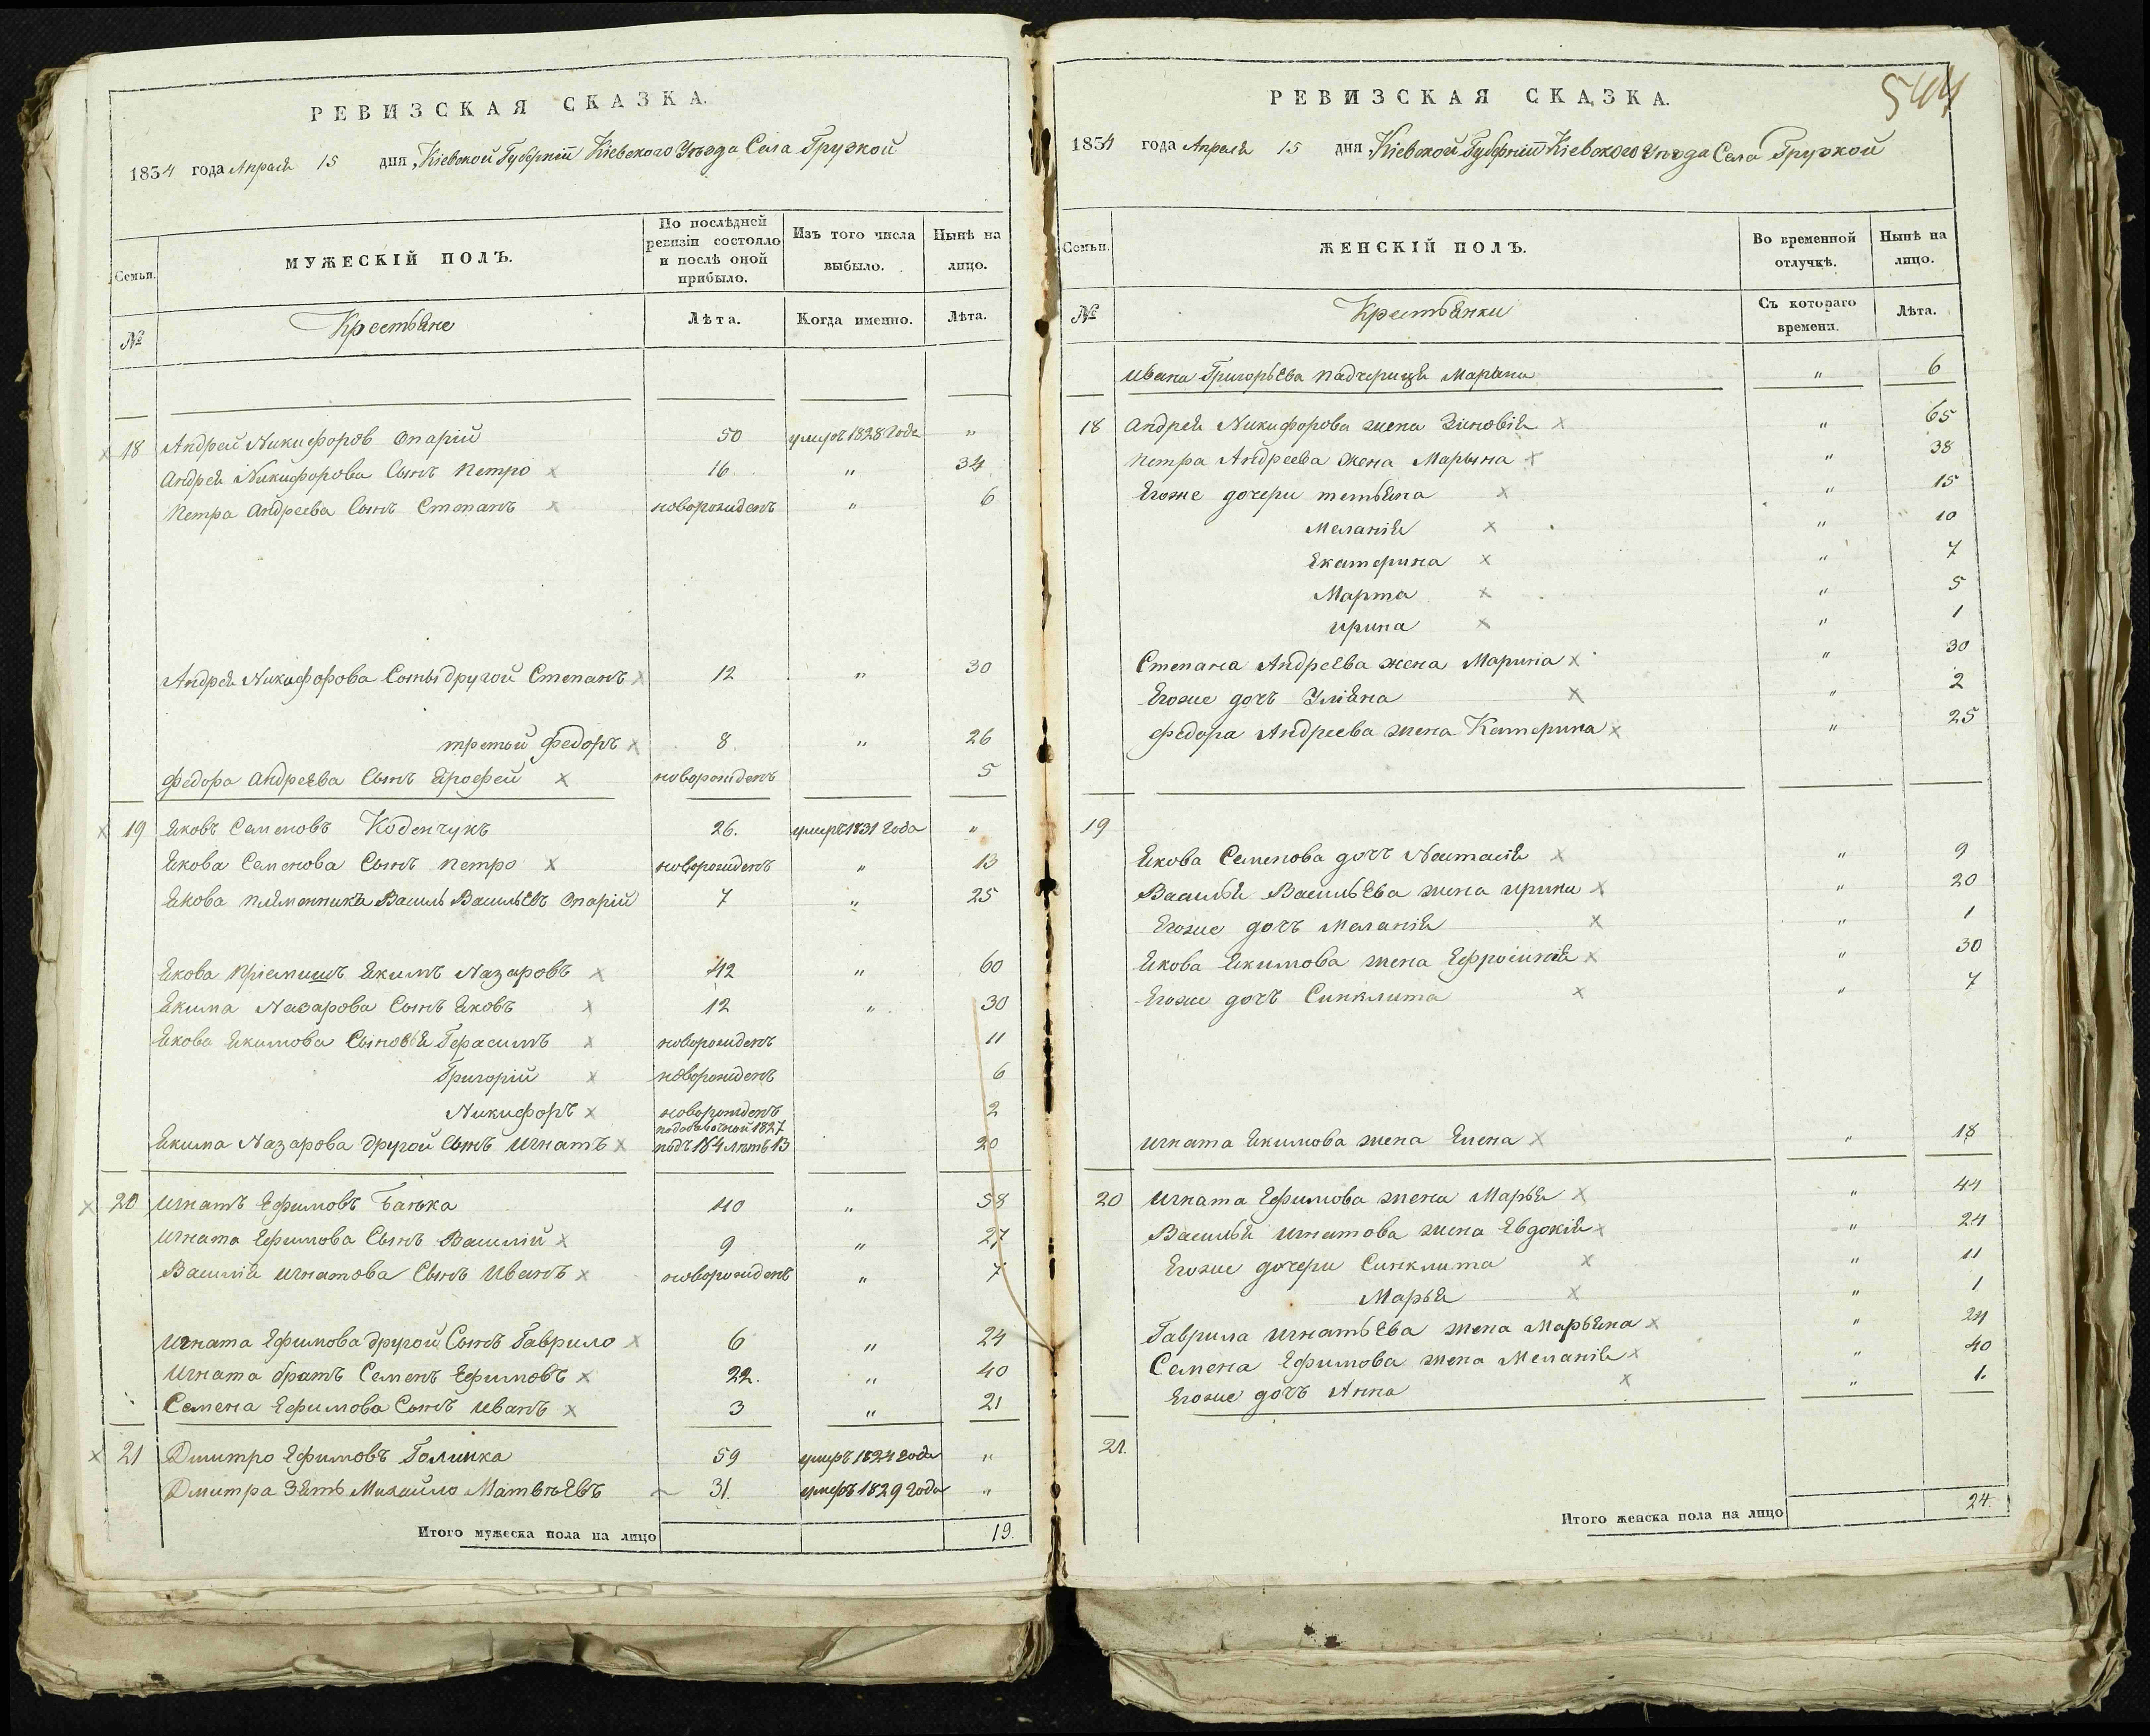 РЕВИЗСКАЯ СКАЗКА.
1834 года Апреля 15 дня, Кіевской Губерніи Кіевского Уезда Села Грузкой
Семьи.
МУЖЕСКІЙ ПОЛЪ.
По послѣдней ревизіи состояло и послѣ оной прибыло.
Изъ того числа выбыло.
Нынѣ на лицо.
№
Крестьяне
Лѣта.
Когда именно.
Лѣта.
18 Андрей Никифоров Опарій 50 умеръ 1828 Года "
Андрея Никифорова Сынъ Петро 16 " 34
Петра Андреева Сынъ Степанъ новорожденъ " 6
Андрея Никифорова Сынъ другой Степанъ 12 " 30
третій Федоръ 8 " 26
Федора Андреева Сынъ Ерофей новорожденъ 5
19 Яковъ Семеновъ Коденчукъ 26. умеръ 1831 Года "
Якова Семенова Сынъ Петро новорожденъ " 13
Якова племенника Василь Васильевъ Опарій 7 " 25
Якова Пріемишъ Якимъ Назаровъ 42 " 60
Якима Назарова Сынъ Яковъ 12 " 30
Якова Якимова Сыновья Герасимъ новорожденъ 11
Григорій новорожденъ 6
Никифоръ новорожденъ 2
1827
Якима Назарова другой Сынъ Игнатъ 13 20
20 Игнатъ Ефимовъ Банька 40 " 58
Игната Ефимова Сынъ Василій 9 " 27
Василія Игнатова Сынъ Иванъ новорожденъ " 7
Игната Ефимова другой Сынъ Гаврило 6 " 24
Игната братъ Семенъ Ефимовъ 22. " 40
Семена Ефимова Сынъ Иванъ 3 " 21
21 Дмитро Ефимовъ Голинка 59 умеръ 1824 Года "
Дмитра Зять Михайло Матвѣевъ 31. умеръ 1829 Года "
Итого мужеска пола на лицо 19.
544
РЕВИЗСКАЯ СКАЗКА.
1834 года Апреля 15 дня, Кіевской Губерніи Кіевского Уезда Села Грузкой
Семьи.
ЖЕНСКІЙ ПОЛЪ.
Во временной отлучкѣ.
Нынѣ на лицо.
№
Крестьянки
Съ котораго времени.
Лѣта.
Ивана Григорьева падчерица Марына " 6
18 Андрея Никифорова жена Зіновія " 65
Петра Андреева жена Марына " 38
Егоже дочери тетьяна " 15
Меланія " 10
Екатерина " 7
Марта " 5
Ирина " 1
Степана Андреева жена Марина " 30
Егоже дочъ Уліяна " 2
Федора Андреева жена Катерина " 25
19
Якова Семенова дочъ Настасія " 9
Василья Васильева жена Ирина " 20
Егоже дочъ Меланія " 1
Якова Якимова жена Ефросинія " 30
Егоже дочъ Синклита " 7
Игната Якимова жена Елена " 18
20 Игната Ефимова жена Марья " 44
Василья Игнатова жена Евдокія " 24
Егоже дочери Синклита " 11
Марья " 1
Гаврила Игнатьева жена Марьяна " 24
Семена Ефимова жена Меланія " 40
Егоже дочъ Анна " 1.
21.
Итого женска пола на лицо 24.